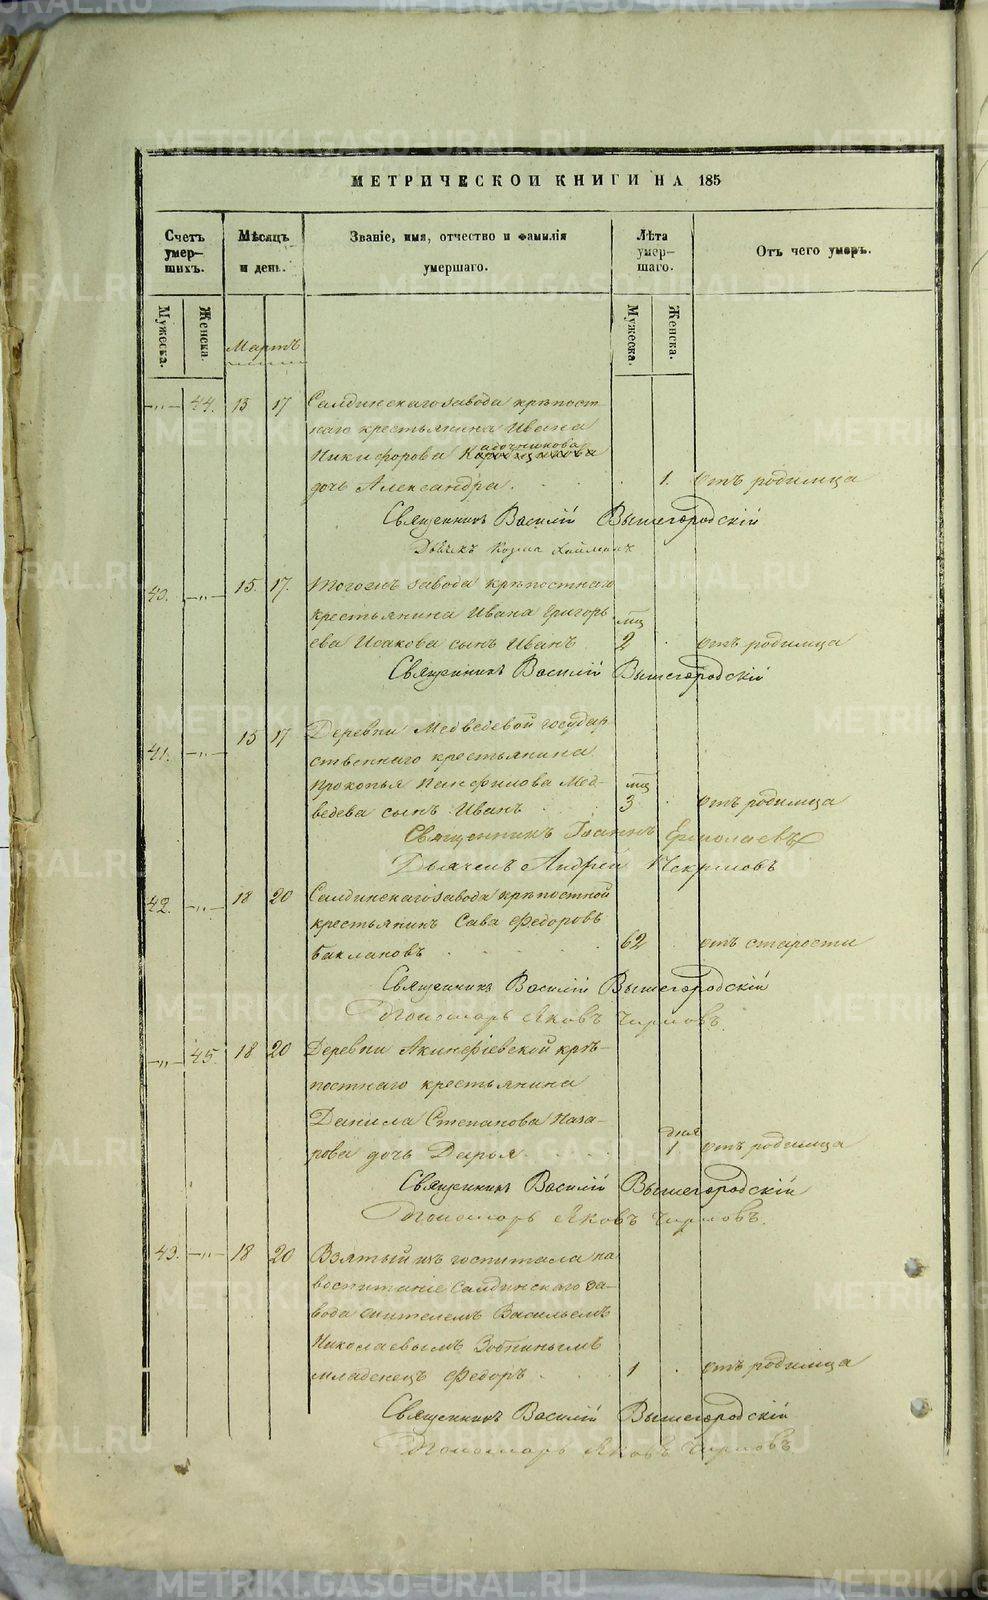 МЕТРИЧЕСКОЙ КНИГИ НА 185
Счетъ умер- шихъ.
Мѣсяцъ и день.
Званіе, имя, отчество и фамилія умершаго.
Лѣта умер- шаго.
Отъ чего умеръ.
Мужеска.
Женска.
Мужеска.
Женска.
Мартъ
-„- 44. 15 17 Салдинскаго завода крѣпост-
наго крестьянина Ивана
адочникова
Никифорова
дочь Александра. 1. отъ родимца
Священникъ Василій Вышегородскій
Дьячекъ Козма
40. -„- 15. 17. Тогожъ завода крѣпостнаго
крестьянина Ивана Григорь
мц
ева Исакова сынъ Иванъ 2 отъ родимца
Священникъ Василій Вышегородскій
41. -„- 15 17 Деревни Медведевой государ
ственнаго крестьянина
Прокопья Панфилова Мед- мц
ведева сынъ Иванъ 3 отъ родимца
Священникъ Іоаннъ Ермолаевъ
Дьячекъ Андрей
42. -„- 18 20 Салдинскаго завода крѣпостной
крестьянинъ Сава Федоровъ
Баклановъ 62 отъ старости
Священникъ Василій Вышегородскій
Пономарь Яковъ Чирковъ.
-„- 45. 18 20 Деревни Акинфіевской крѣ-
постнаго крестьянина
Данила Степанова Наза- дня
рова дочь Дарья 1 отъ родимца
Священникъ Василій Вышегородскій
Пономарь Яковъ Чирковъ.
43. -„- 18 20 Взятый изъ госпитала на
воспитаніе Салдинскаго за-
вода жителемъ Васильемъ
Николаевымъ Зобнинымъ
младенецъ Федоръ 1 отъ родимца
Священникъ Василій Вышегородскій
Пономарь Яковъ Чирковъ
METRIKI.GASO-URAL.RU